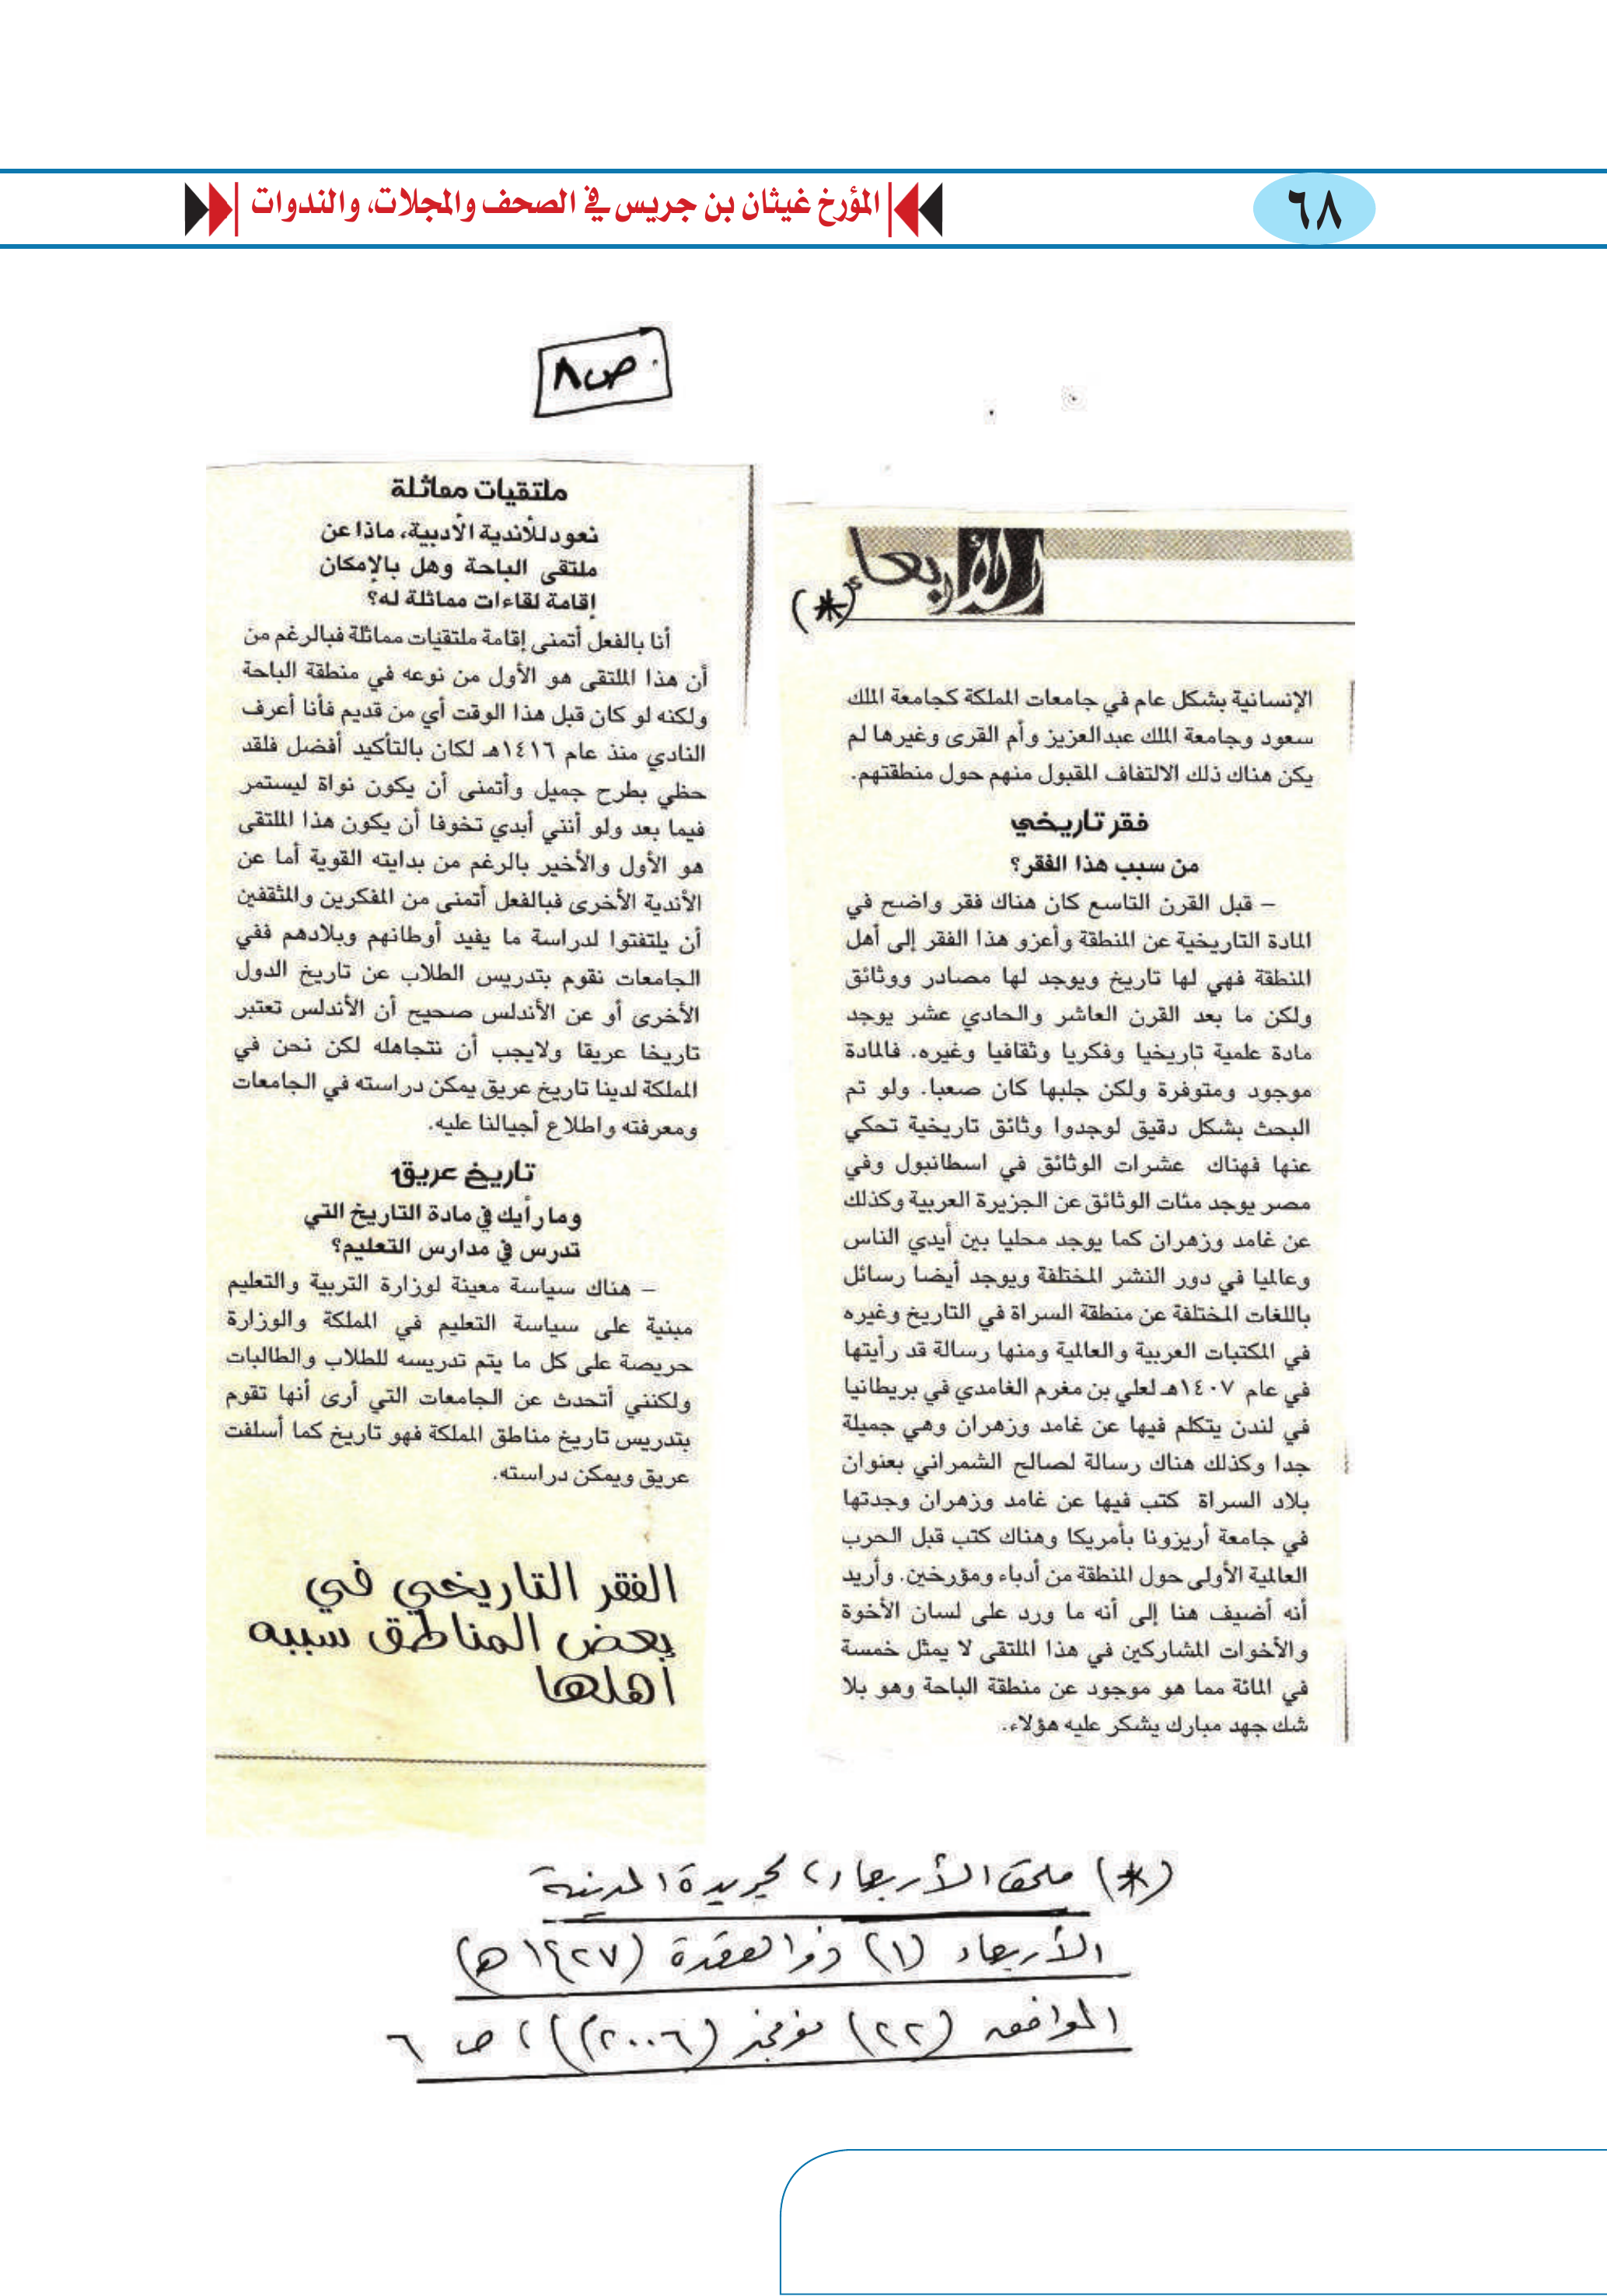 ٦٨
المؤرخ غيثان بن جريس في الصحف والمجلات، والندوات
ص٨
الأربعاء
(*)
الإنسانية بشكل عام في جامعات المملكة كجامعة الملك
سعود وجامعة الملك عبدالعزيز وأم القرى وغيرها لم
يكن هناك ذلك الالتفاف المقبول منهم حول منطقتهم.
فقر تاريخي
من سبب هذا الفقر؟
– قبل القرن التاسع كان هناك فقر واضح في
المادة التاريخية عن المنطقة وأعزو هذا الفقر إلى أهل
المنطقة فهي لها تاريخ ويوجد لها مصادر ووثائق
ولكن ما بعد القرن العاشر والحادي عشر يوجد
مادة علمية تاريخيا وفكريا وثقافيا وغيره. فالمادة
موجود ومتوفرة ولكن جلبها كان صعبا. ولو تم
البحث بشكل دقيق لوجدوا وثائق تاريخية تحكي
عنها فهناك عشرات الوثائق في اسطانبول وفي
مصر يوجد مئات الوثائق عن الجزيرة العربية وكذلك
عن غامد وزهران كما يوجد محليا بين أيدي الناس
وعالميا في دور النشر المختلفة ويوجد أيضا رسائل
باللغات المختلفة عن منطقة السراة في التاريخ وغيره
في المكتبات العربية والعالمية ومنها رسالة قد رأيتها
في عام ١٤٠٧هـ لعلي بن مغرم الغامدي في بريطانيا
في لندن يتكلم فيها عن غامد وزهران وهي جميلة
جدا وكذلك هناك رسالة لصالح الشمراني بعنوان
بلاد السراة كتب فيها عن غامد وزهران وجدتها
في جامعة أريزونا بأمريكا وهناك كتب قبل الحرب
العالمية الأولى حول المنطقة من أدباء ومؤرخين. وأريد
أنه أضيف هنا إلى أنه ما ورد على لسان الأخوة
والأخوات المشاركين في هذا الملتقى لا يمثل خمسة
في المائة مما هو موجود عن منطقة الباحة وهو بلا
شك جهد مبارك يشكر عليه هؤلاء.
ملتقيات مماثلة
نعود للأندية الأدبية، ماذا عن
ملتقى الباحة وهل بالإمكان
إقامة لقاءات مماثلة له؟
أنا بالفعل أتمنى إقامة ملتقيات مماثلة فبالرغم من
أن هذا الملتقى هو الأول من نوعه في منطقة الباحة
ولكنه لو كان قبل هذا الوقت أي من قديم فأنا أعرف
النادي منذ عام ١٤١٦هـ لكان بالتأكيد أفضل فلقد
حظي بطرح جميل وأتمنى أن يكون نواة ليستمر
فيما بعد ولو أنني أبدي تخوفا أن يكون هذا الملتقى
هو الأول والأخير بالرغم من بدايته القوية أما عن
الأندية الأخرى فبالفعل أتمنى من المفكرين والمثقفين
أن يلتفتوا لدراسة ما يفيد أوطانهم وبلادهم ففي
الجامعات نقوم بتدريس الطلاب عن تاريخ الدول
الأخرى أو عن الأندلس صحيح أن الأندلس تعتبر
تاريخا عريقا ولايجب أن نتجاهله لكن نحن في
المملكة لدينا تاريخ عريق يمكن دراسته في الجامعات
ومعرفته واطلاع أجيالنا عليه.
تاريخ عريق
وما رأيك في مادة التاريخ التي
تدرس في مدارس التعليم؟
– هناك سياسة معينة لوزارة التربية والتعليم
مبنية على سياسة التعليم في المملكة والوزارة
حريصة على كل ما يتم تدريسه للطلاب والطالبات
ولكنني أتحدث عن الجامعات التي أرى أنها تقوم
بتدريس تاريخ مناطق المملكة فهو تاريخ كما أسلفت
عريق ويمكن دراسته.
الفقر التاريخي في
بعض المناطق سببه
أهلها
(*) ملحق الأربعاء، لجريدة المدينة
الأربعاء (١) ذو القعدة (١٤٢٧هـ)
الموافق (٢٢) نوفمبر (٢٠٠٦م))، ص ٦